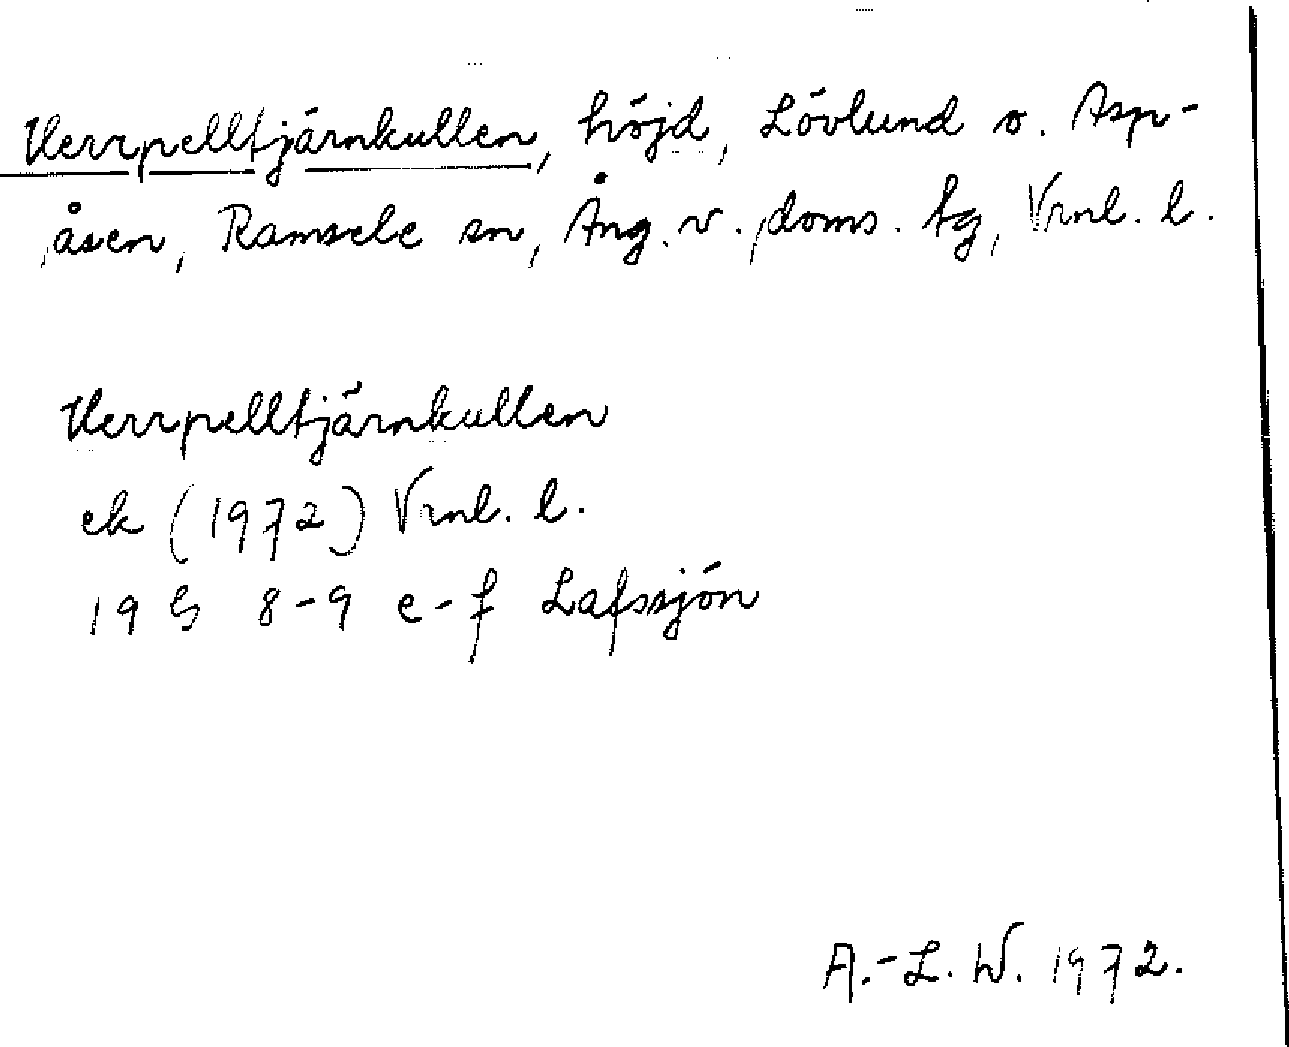 Herrpelltjärnkullen, höjd, Lövlund o. Asp-
åsen, Ramsele sn, Ång. v. doms. tg, Vrnl. l.
Herrpelltjärnkullen
ek (1972) Vrnl. l.
19 G 8-9 e-f Lafssjön
A.-L. W. 1972.